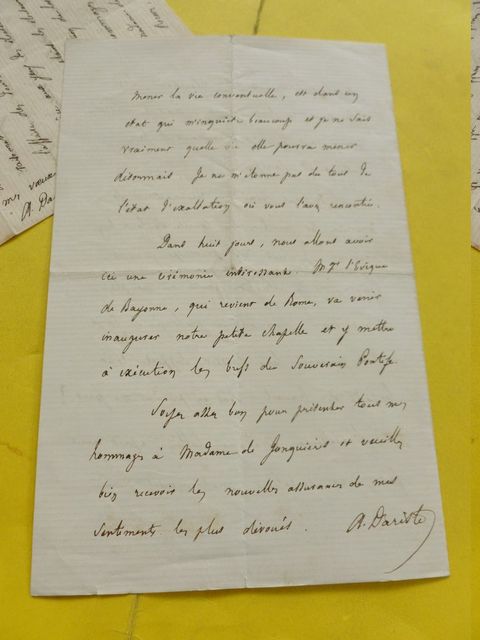 mener la vie conventuelle, est dans un
état qui m'inquiète beaucoup et je ne sais
vraiment quelle vie elle pourra mener
désormais. Je ne m'étonne pas du tout de
l'état d'exaltation où vous l'avez rencontrée.
Dans huit jours, nous allons avoir
ici une cérémonie intéressante. Mgr l'Evêque
de Bayonne, qui revient de Rome, va venir
inaugurer notre petite chapelle et y mettre
à exécution les brefs du Souverain Pontife.
Soyez assez bon pour présenter tous mes
hommages à Madame de Jonquières et veuillez
bien recevoir les nouvelles assurances de mes
sentiments les plus dévoués. A. Dariste